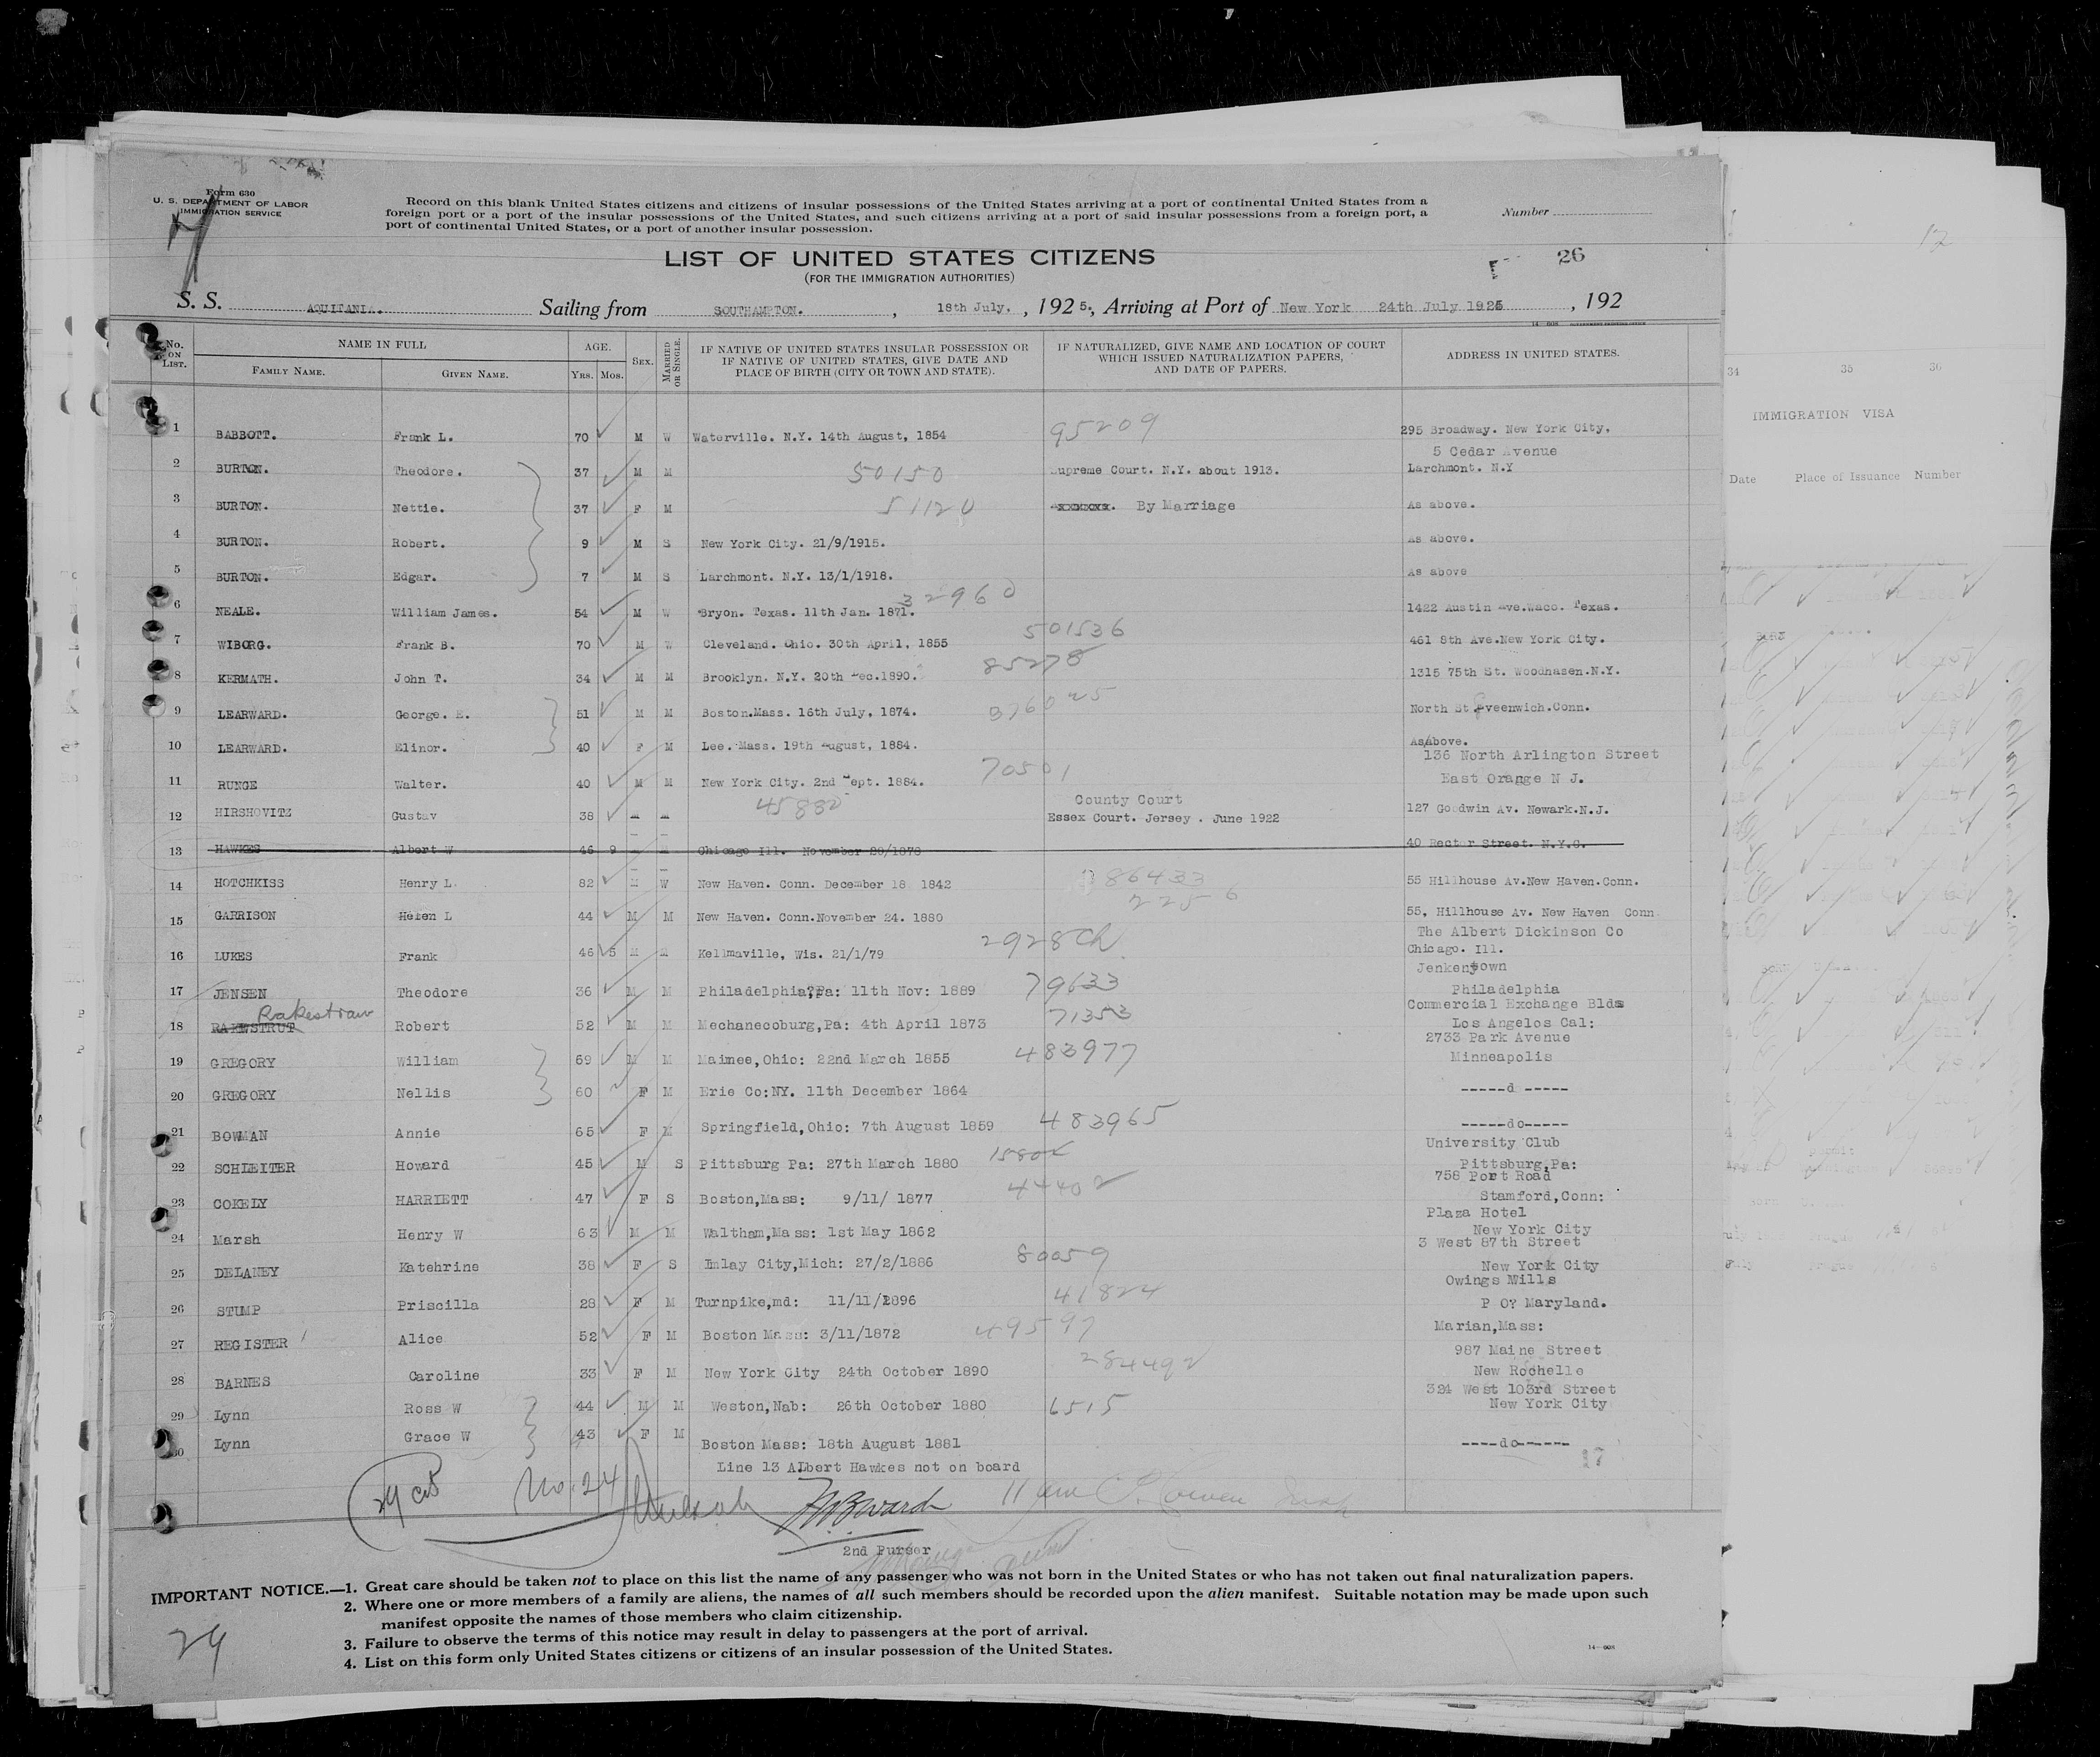 Form 630
U. S. DEPARTMENT OF LABOR
IMMIGRATION SERVICE
Record on this blank United States citizens and citizens of insular possessions of the United States arriving at a port of continental United States from a
foreign port or a port of the insular possessions of the United States, and such citizens arriving at a port of said insular possessions from a foreign port, a
port of continental United States, or a port of another insular possession.
Number
LIST OF UNITED STATES CITIZENS
(FOR THE IMMIGRATION AUTHORITIES)
26
S. S. AQUITANIA. Sailing from SOUTHAMPTON. , 18th July. , 192 5., Arriving at Port of New York 24th July 1925 , 192
No. ON LIST. NAME IN FULL AGE. SEX. MARRIED OR SINGLE. IF NATIVE OF UNITED STATES INSULAR POSSESSION OR IF NATIVE OF UNITED STATES, GIVE DATE AND PLACE OF BIRTH (CITY OR TOWN AND STATE). IF NATURALIZED, GIVE NAME AND LOCATION OF COURT WHICH ISSUED NATURALIZATION PAPERS, AND DATE OF PAPERS. ADDRESS IN UNITED STATES.
FAMILY NAME. GIVEN NAME. YRS. MOS.
1 BABBOTT. Frank L. 70 M W Waterville. N.Y. 14th August, 1854 95209 295 Broadway. New York City.
5 Cedar Avenue
2 BURTON. Theodore. 37 M M 50150 Supreme Court. N.Y. about 1913. Larchmont. N.Y
3 BURTON. Nettie. 37 F M 51120 By Marriage As above.
4 BURTON. Robert. 9 M S New York City. 21/9/1915. As above.
5 BURTON. Edgar. 7 M S Larchmont. N.Y. 13/1/1918. As above
6 NEALE. William James. 54 M W Bryon. Texas. 11th Jan. 1871. 32960 1422 Austin Ave.Waco. Texas.
7 WIBORG. Frank B. 70 M W Cleveland. Ohio. 30th April, 1855 501536 461 8th Ave.New York City.
8 KERMATH. John T. 34 M M Brooklyn. N.Y. 20th Dec.1890. 85278 1315 75th St. Woodhasen.N.Y.
9 LEARWARD. George. E. 51 M M Boston.Mass. 16th July, 1874. 376025 North St.Greenwich.Conn.
10 LEARWARD. Elinor. 40 F M Lee. Mass. 19th August, 1884. As above.
136 North Arlington Street
11 RUNGE Walter. 40 M M New York City. 2nd Sept. 1884. 70501 East Orange N J.
12 HIRSHOVITZ Gustav 38 M M 45880 County Court
Essex Court. Jersey . June 1922 127 Goodwin Av. Newark.N.J.
13 HAWKES Albert W 46 9 Chicago Ill. November 20/1878 40 Rector Street. N.Y.C.
14 HOTCHKISS Henry L. 82 M W New Haven. Conn. December 18 1842 86433 55 Hillhouse Av.New Haven.Conn.
2256
15 GARRISON Helen L 44 M M New Haven. Conn.November 24. 1880 55, Hillhouse Av. New Haven Conn
The Albert Dickinson Co
16 LUKES Frank 46 5 M M Kellmaville, Wis. 21/1/79 2928Ch Chicago. Ill.
Jenkentown
17 JENSEN Theodore 36 M M Philadelphia?Pa: 11th Nov: 1889 79633 Philadelphia
Rakestraw
Commercial Exchange Blds
18 RAKESTRUT Robert 52 M M Mechanecoburg,Pa: 4th April 1873 71353 Los Angelos Cal:
2733 Park Avenue
19 GREGORY William 69 M M Maimee,Ohio: 22nd March 1855 483977 Minneapolis
20 GREGORY Nellis 60 F M Erie Co:NY. 11th December 1864 -----d -----
21 BOWMAN Annie 65 F M Springfield,Ohio: 7th August 1859 483965 -----do-----
University Club
22 SCHLEITER Howard 45 M S Pittsburg Pa: 27th March 1880 15802 Pittsburg,Pa:
758 Port Road
23 COKELY HARRIETT 47 F S Boston,Mass: 9/11/ 1877 44402 Stamford,Conn:
Plaza Hotel
24 Marsh Henry W 63 M M Waltham,Mass: 1st May 1862 New York City
3 West 87th Street
25 DELANEY Katehrine 38 F S Imlay City,Mich: 27/2/1886 80059 New York City
Owings Mills
26 STUMP Priscilla 28 F M Turnpike,md: 11/11/1896 41824 P O? Maryland.
27 REGISTER Alice 52 F M Boston Mass: 3/11/1872 49597 Marian,Mass:
987 Maine Street
28 BARNES Caroline 33 F M New York City 24th October 1890 284492 New Rochelle
324 West 103rd Street
29 Lynn Ross W 44 M M Weston,Nab: 26th October 1880 6515 New York City
30 Lynn Grace W 43 F M Boston Mass: 18th August 1881 ----do------
17
Line 13 Albert Hawkes not on board
No. 24
2nd Purser
IMPORTANT NOTICE.—1. Great care should be taken not to place on this list the name of any passenger who was not born in the United States or who has not taken out final naturalization papers.
2. Where one or more members of a family are aliens, the names of all such members should be recorded upon the alien manifest. Suitable notation may be made upon such
manifest opposite the names of those members who claim citizenship.
3. Failure to observe the terms of this notice may result in delay to passengers at the port of arrival.
4. List on this form only United States citizens or citizens of an insular possession of the United States.
29
14—608
17
34 35 36
IMMIGRATION VISA
Date Place of Issuance Number